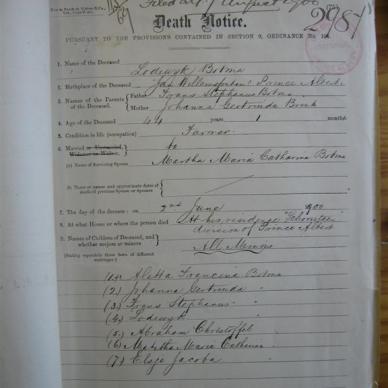 Filed
August
298
Death Notice.
PURSUANT TO THE PROVISIONS CONTAINED IN SECTION 9, ORDINANCE No. 104.
1. Name of the Deceased
Lodewyk Botma
2. Birthplace of the Deceased
Prince Albert
3. Names of the Parents of the Deceased
Father Frans Stephanus Botma
Mother Johanna Gertruida
4. Age of the Deceased 44 years 1 months
5. Condition in life (occupation) Farmer
6. Married or Unmarried, Widower or Widow to
(a) Name of Surviving Spouse
Martha Maria Catharina Botma
(b) Name or names and approximate dates of death of previous Spouse or Spouses
7. The day of the decease: on 2nd June 1900
8. At what House or where the person died At his residence
division of Prince Albert
9. Names of Children of Deceased, and whether majors or minors
All Minors
(Stating separately those born of different marriages)
(1) Aletta Francina Botma
(2) Johanna Gertruida "
(3) Frans Stephanus "
(4) Lodewyk "
(5) Abraham Christoffel "
(6) Martha Maria "
(7) Elsje Jacoba "